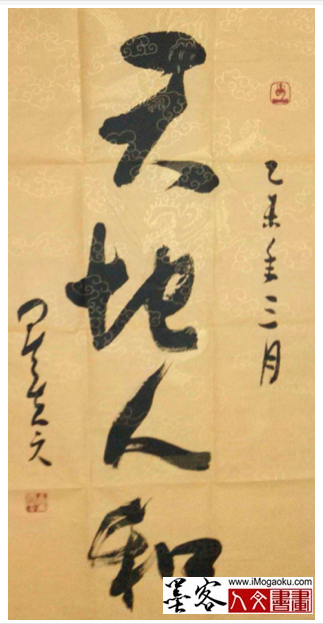 乙未年三月
天地人和
www.iMogaoku.com
墨客
人文書畫